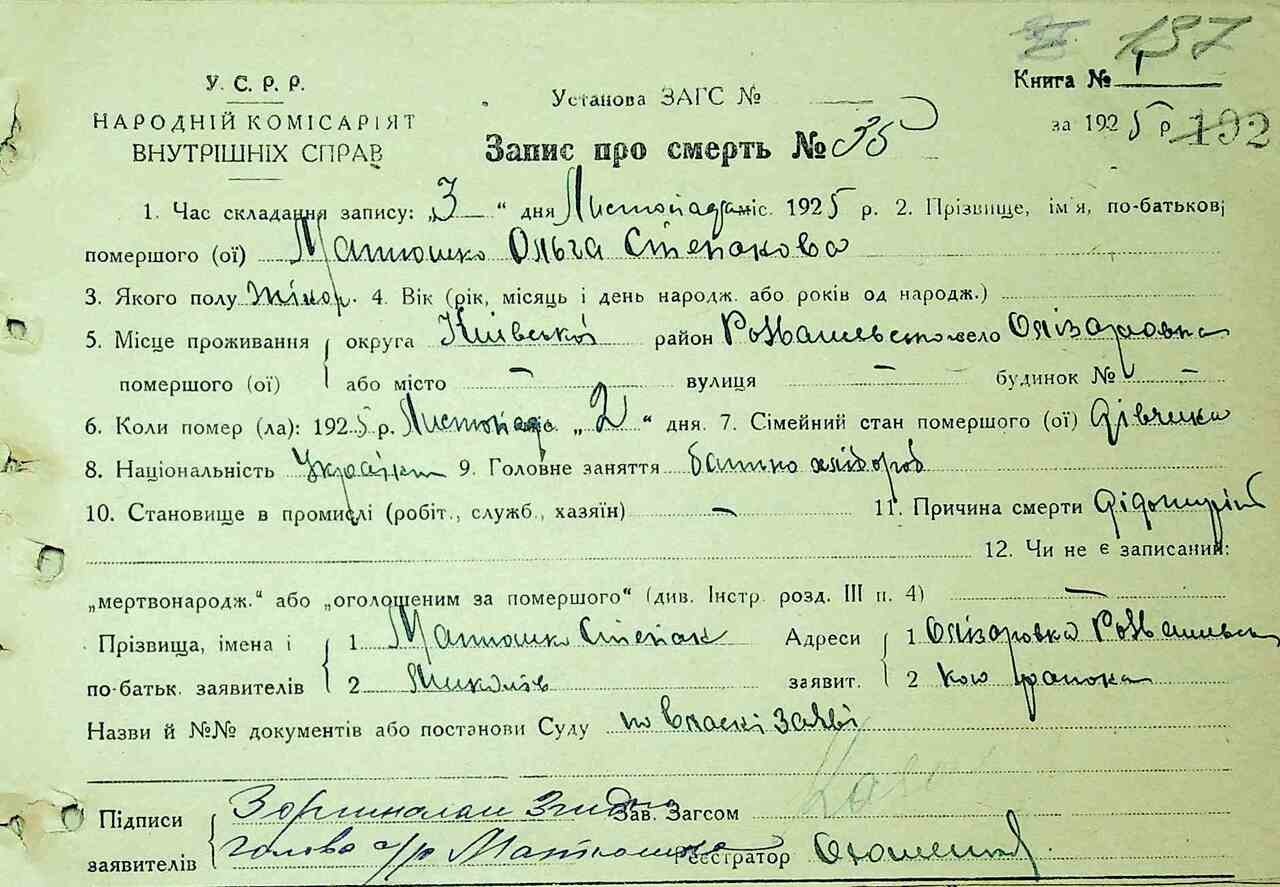 197
У. С. Р. Р.
НАРОДНІЙ КОМІСАРІЯТ
ВНУТРІШНІХ СПРАВ
Установа ЗАГС №
Книга №
за 1925 р. 192
Запис про смерть № 35
1. Час складання запису: „3“ дня Листопада міс. 1925 р. 2. Прізвище, ім'я, по-батькові
помершого (ої) Матюшко Ольга Степанова
3. Якого полу Жіноч. 4. Вік (рік, місяць і день народж. або років од народж.)
5. Місце проживання округа Київської район Розважевського село Олізаровка
помершого (ої) або місто — вулиця — будинок № —
6. Коли помер (ла): 1925 р. Листопада міс. „2“ дня. 7. Сімейний стан помершого (ої) дівчина
8. Національність україн 9. Головне заняття батько хлібороб
10. Становище в промислі (робіт., служб., хазяїн) — 11. Причина смерти
12. Чи не є записаний:
„мертвонародж.“ або „оголошеним за помершого“ (див. Інстр. розд. III п. 4) —
Прізвища, імена і 1 Матюшко Степан Адреси 1 Олізаровка
по-батьк. заявителів 2 Миколаїв заявит. 2 кого района
Назви й №№ документів або постанови Суду по власні заяві
Підписи З оригіналом згідно Зав. Загсом
заявителів голова с/р Матюшко Реєстратор